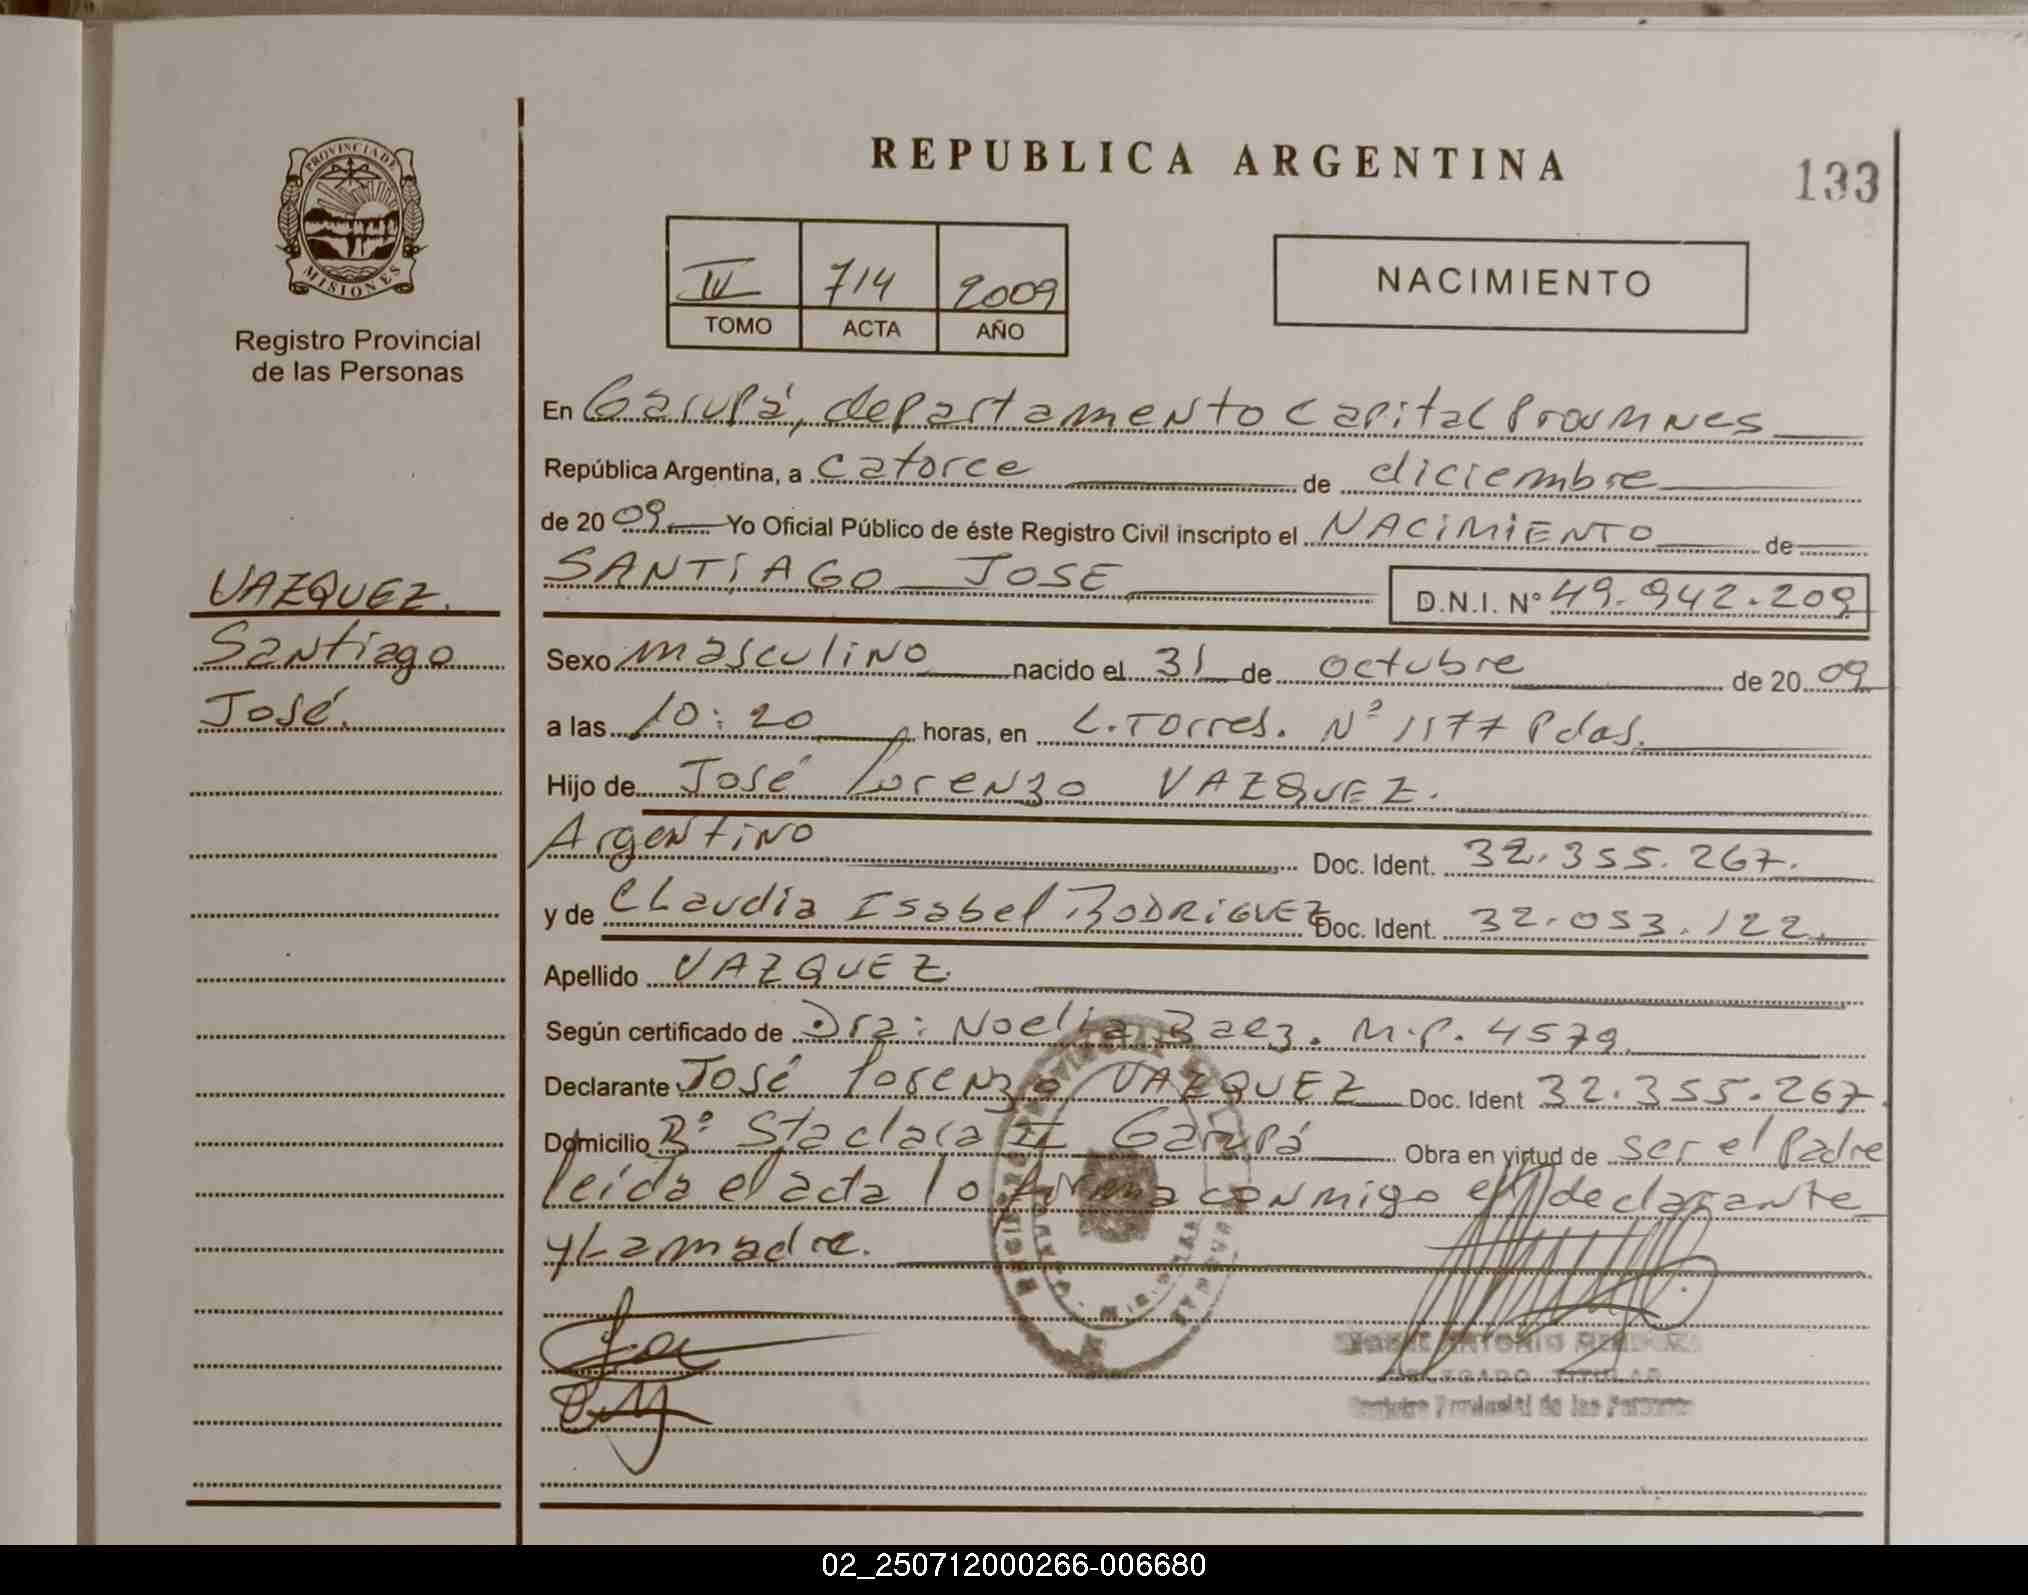 REPUBLICA ARGENTINA
133
PROVINCIA DE
MISIONES
Registro Provincial
de las Personas
IV 714 2009
TOMO ACTA AÑO
NACIMIENTO
En Garupá, departamento Capital Prov Mnes
República Argentina, a catorce de diciembre
de 20 09 Yo Oficial Público de éste Registro Civil inscripto el NACIMIENTO de
SANTIAGO JOSE D.N.I. Nº 49.942.209
VAZQUEZ.
Santiago
José.
Sexo masculino nacido el 31 de octubre de 20 09
a las 10:20 horas, en L. Torres. Nº 1177 Pdas.
Hijo de José Lorenzo VAZQUEZ.
Argentino Doc. Ident. 32.355.267.
y de Claudia Isabel RODRIGUEZ Doc. Ident. 32.053.122.
Apellido VAZQUEZ.
Según certificado de Dra: Noelia Baez. M.P. 4579.
Declarante José Lorenzo VAZQUEZ Doc. Ident 32.355.267.
Domicilio Bº Sta clara II Garupá Obra en virtud de ser el Padre
leída el acta lo firma conmigo el declarante
y La madre.
ANTONIO
DELEGADO TITULAR
Registro Provincial de las Personas
02_250712000266-006680